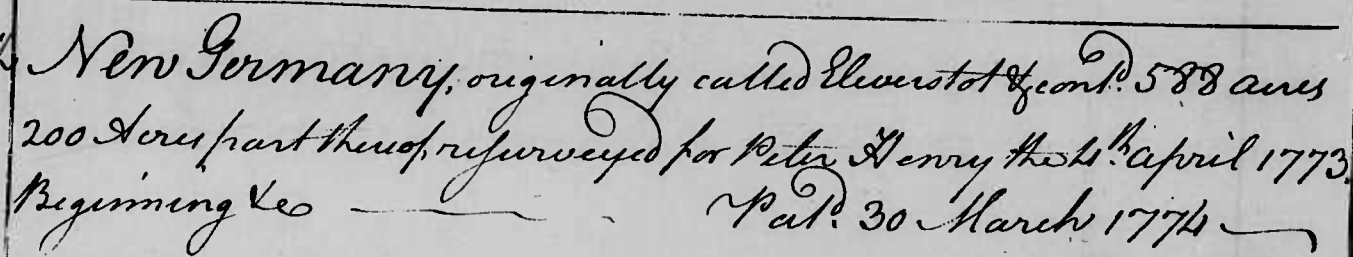 New Germany, originally called Elwerstot & cont.d 588 acres
200 Acres part thereof, resurveyed for Peter Henry the 4.th april 1773.
Beginning &c Pat.d 30 March 1774